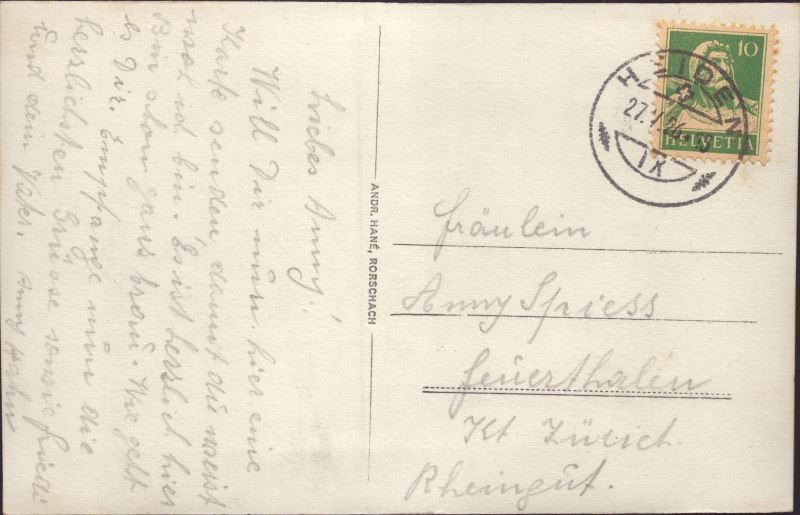 Liebes Anny!
Will Dir nun hier eine
Karte senden damit du weist
wo ich bin. Es ist herrlich hier
Bin schon ganz braun. Wie geht
es Dir. Empfange nun die
herzlichsten Grüsse sowie
und dein Vater. Anny
ANDR. HANÉ, RORSCHACH
10
HELVETIA
HEIDEN
27.V.24
IX
Fräulein
Anny Spiess
Feuerthalen
Kt Zürich.
Rheingut.